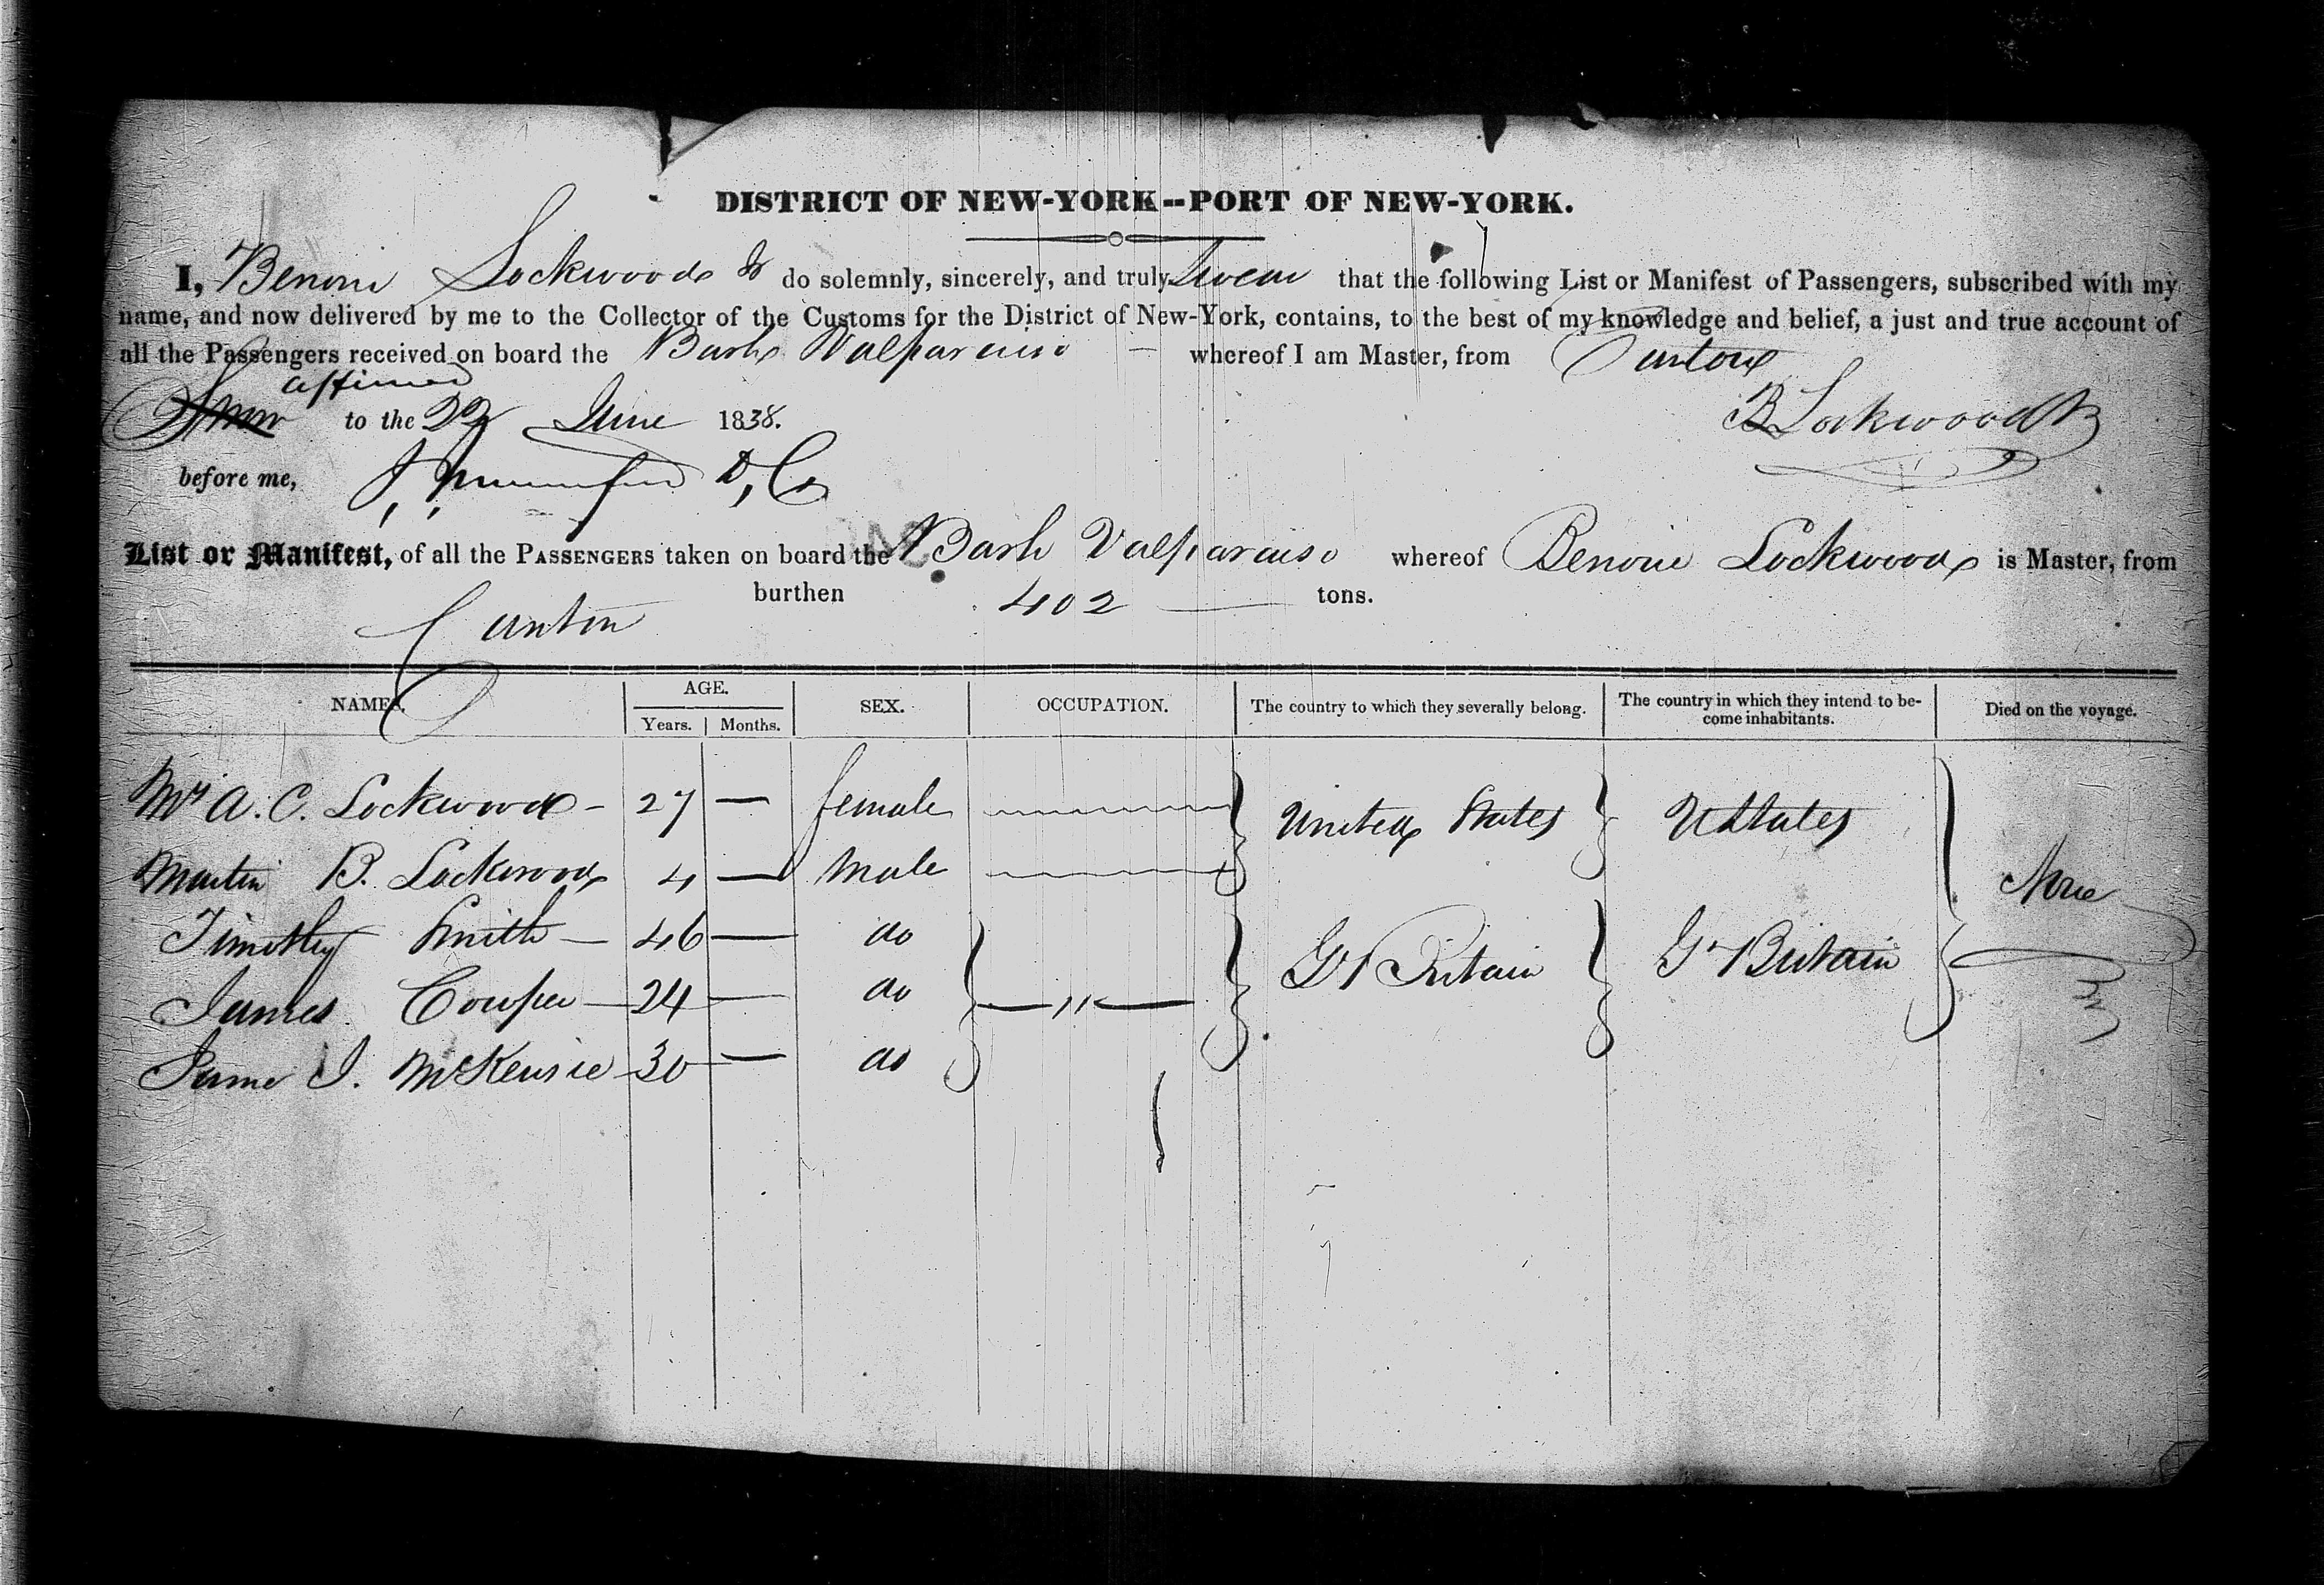 DISTRICT OF NEW-YORK--PORT OF NEW-YORK.
I, Benoni Lockwood Jr do solemnly, sincerely, and truly swear that the following List or Manifest of Passengers, subscribed with my
name, and now delivered by me to the Collector of the Customs for the District of New-York, contains, to the best of my knowledge and belief, a just and true account of
all the Passengers received on board the Bark Valparaiso — whereof I am Master, from Canton
affirmed
Sworn to the 22 June 1838. B Lockwood Jr
before me, D, C
List or Manifest, of all the PASSENGERS taken on board the Bark Valparaiso whereof Benoni Lockwood is Master, from
Canton burthen 402 — tons.
NAMES. AGE. SEX. OCCUPATION. The country to which they severally belong. The country in which they intend to become inhabitants. Died on the voyage.
Years. Months.
Mrs A. C. Lockwood - 27 — female United States UStates
Martin B. Lockwood 4 — Male None
Timothy Smith — 46 — do
James Cowper — 24 — do — " — Gt Britain Gt Britain
Jame I. McKensie 30 — do